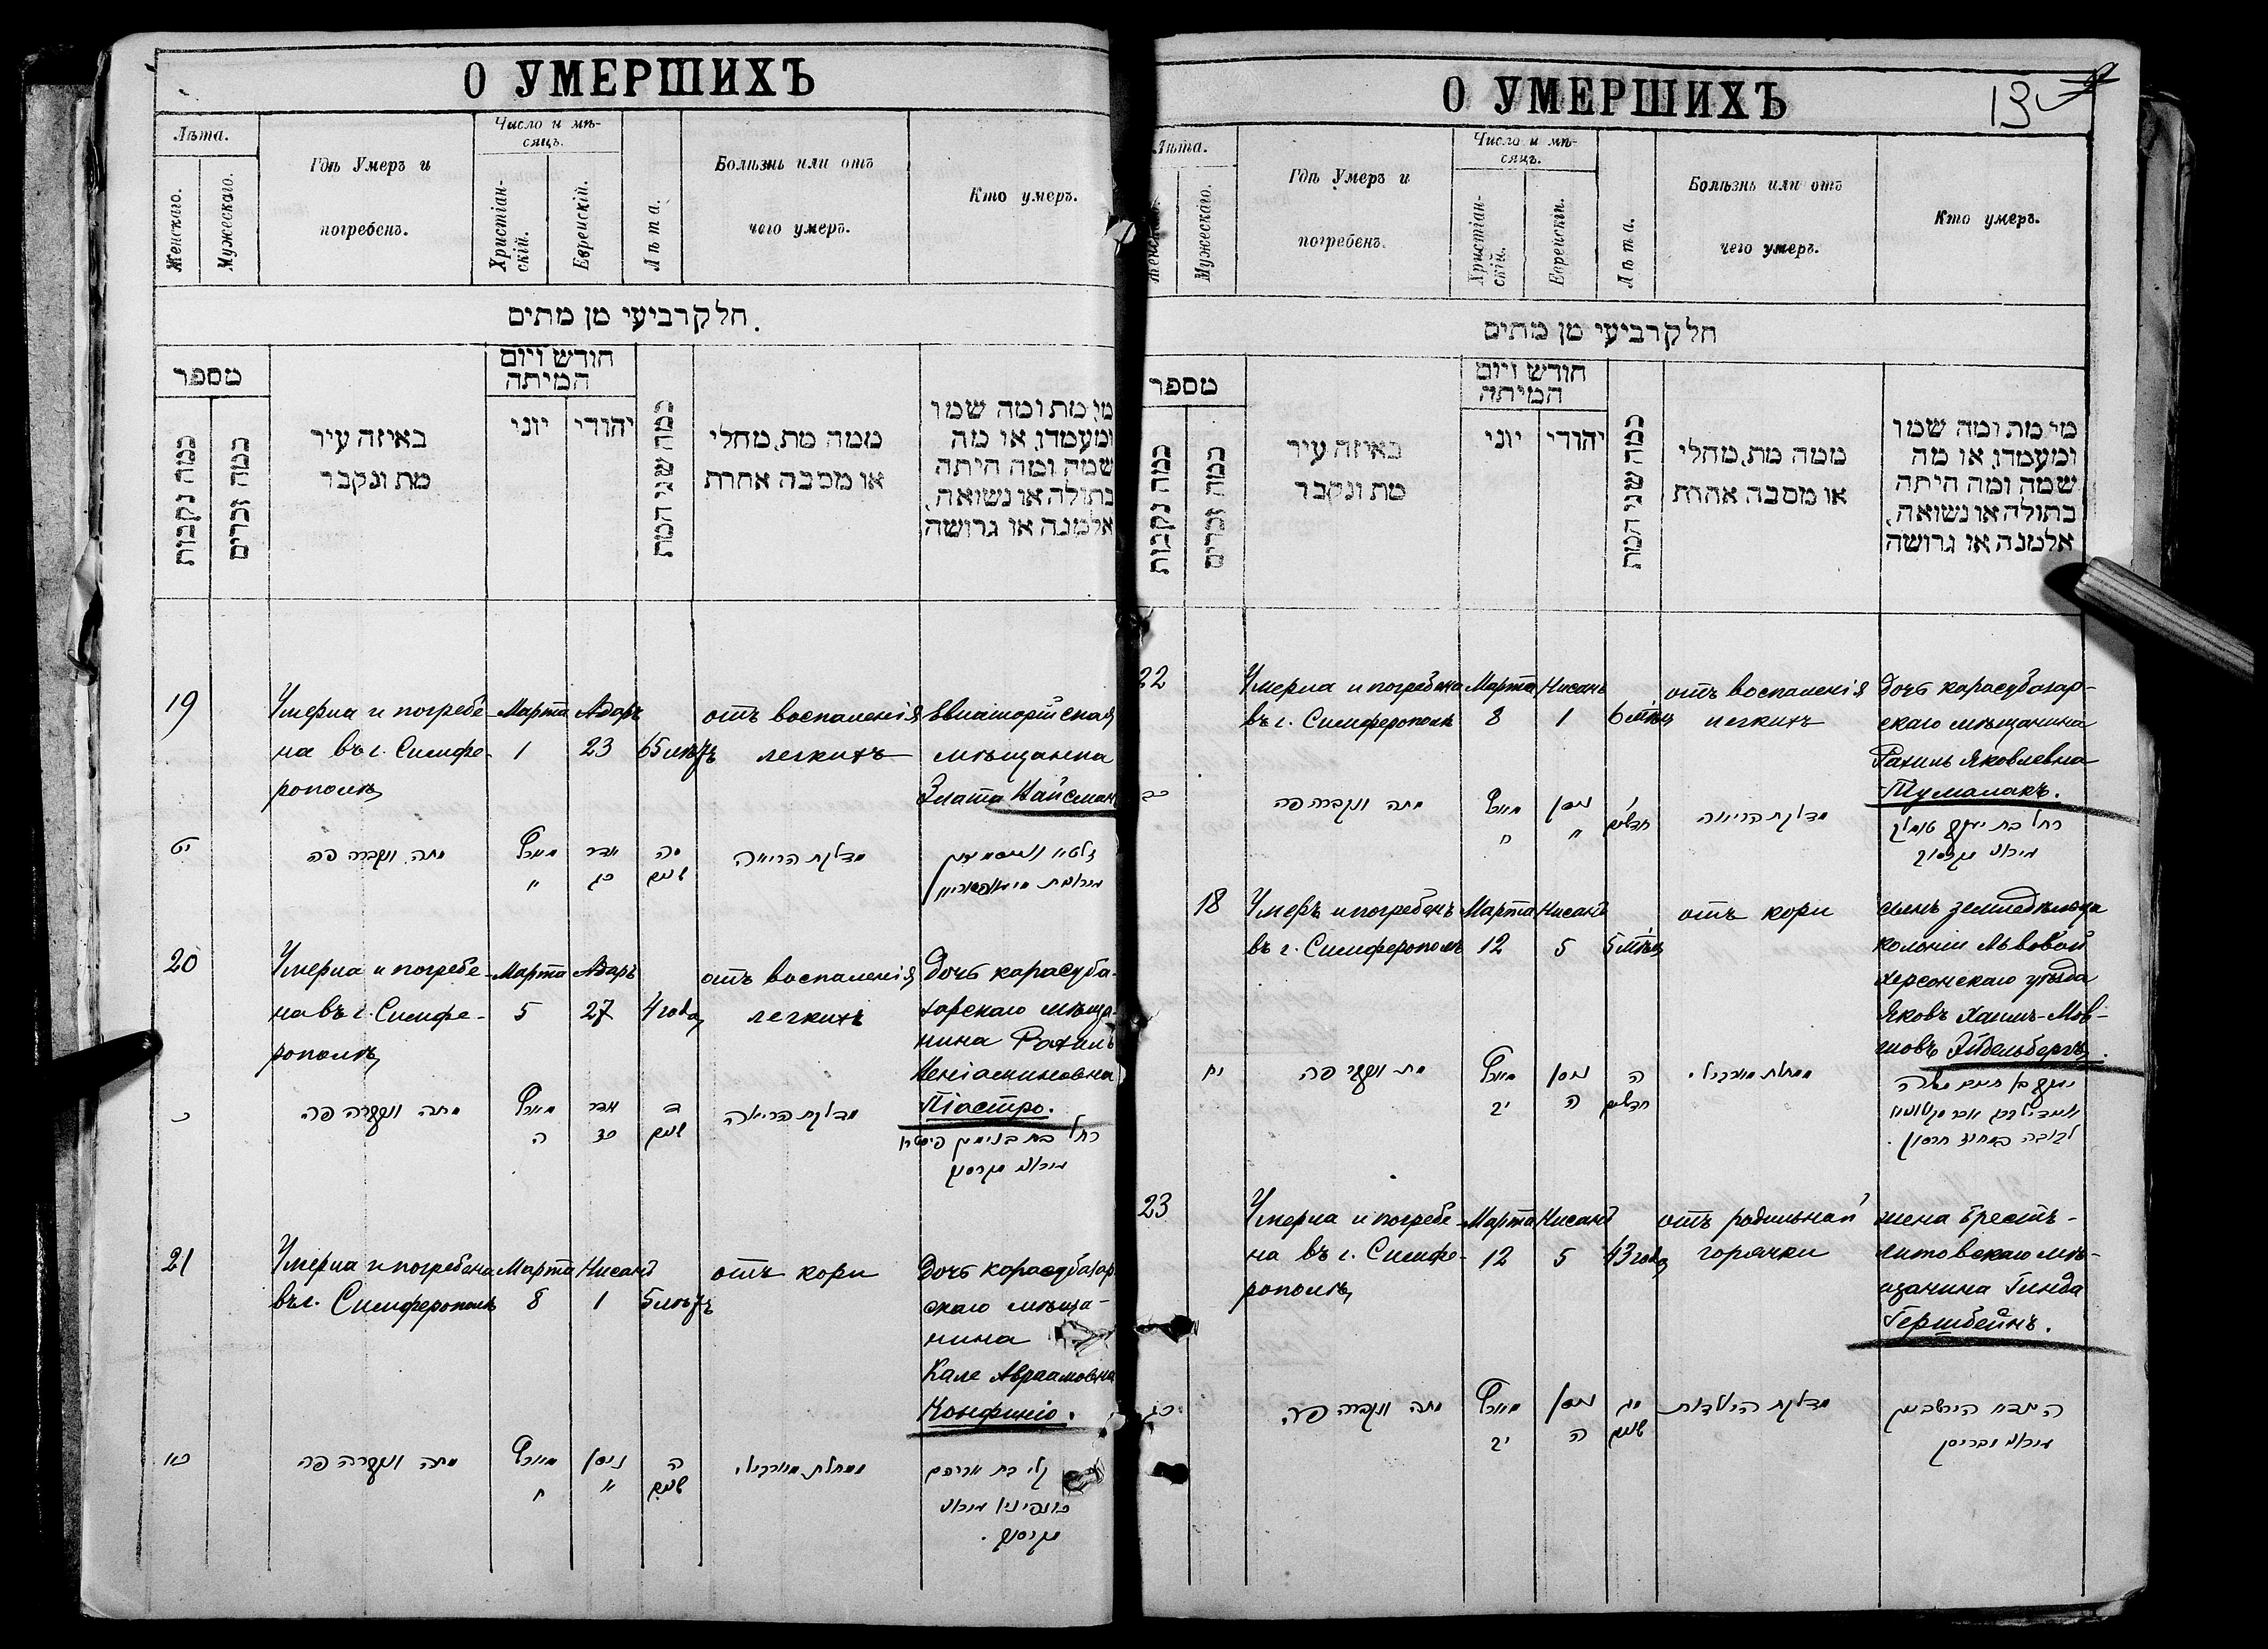 О УМЕРШИХЪ
Лѣта.
Женскаго.
Мужескаго.
Гдѣ Умеръ и
погребенъ.
Число и мѣ-
сяцъ.
Христіан-
скій.
Еврейскій.
Лѣта.
Болѣзнь или отъ
чего умеръ.
Кто умеръ.
חלק רביעי מן מתים.
מספר
כמה נקבות
כמה זכרים
באיזה עיר
מת ונקבר
חודש ויום
המיתה
יוני
יהודי
כמה שני המת
ממה מת, מחלי
או מסבה אחרת
מי מת ומה שמו
ומעמדו, או מה
שמה ומה היתה
בתולה או נשואה,
אלמנה או גרושה
19
Умерла и погребе-
на въ г. Симфе-
рополѣ
Марта
1
Адаръ
23
65 лѣтъ
отъ воспаленія
легкихъ
мѣщанка
Злата Найсман
יט
מתה ונקברה פה
מארט
א
אדר
כג
סה
שנים
מדלקת הריאה
20
Умерла и погребе-
на въ г. Симфе-
рополѣ
Марта
5
Адаръ
27
4 года
отъ воспаленія
легкихъ
Дочь карасуба-
зарскаго мѣща-
нина Рахиль
Веніаминовна
Піастро.
כ
מתה ונקברה פה
מארט
ה
אדר
ד
שנים
מדלקת הריאה
רחל בת בנימין
21
Умерла и погребена
въ г. Симферополѣ
Марта
8
Нисанъ
1
5 лѣтъ
отъ кори
Дочь карасубазар-
скаго мѣща-
нина
Кале Авраамовна
Конфино.
כא
מתה ונקברה פה
מארט
ח
ניסן
א
ה
שנים
קלי בת אברהם
О УМЕРШИХЪ
13
Лѣта.
Женскаго.
Мужескаго.
Гдѣ Умеръ и
погребенъ.
Число и мѣ-
сяцъ.
Христіан-
скій.
Еврейскій.
Лѣта.
Болѣзнь или отъ
чего умеръ.
Кто умеръ.
חלק רביעי מן מתים
מספר
כמה נקבות
כמה זכרים
באיזה עיר
מת ונקבר
חודש ויום
המיתה
יוני
יהודי
כמה שני המת
ממה מת, מחלי
או מסבה אחרת
מי מת ומה שמו
ומעמדו, או מה
שמה ומה היתה
בתולה או נשואה,
אלמנה או גרושה
22
Умерла и погребена
въ г. Симферополѣ
Марта
8
Нисанъ
1
6 мѣц
отъ воспаленія
легкихъ
Дочь карасубазар-
скаго мѣщанина
Рахиль Яковлевна
Тумалакъ.
כב
מתה ונקברה פה
מארט
ח
ניסן
א
ו
חדשים
מדלקת הריאה
רחל בת יעקב
18
Умеръ и погребенъ
въ г. Симферополѣ
Марта
12
Нисанъ
5
5 мѣц
отъ кори
сынъ земледѣльца
колоніи Львовой
херсонскаго уѣзда
Яковъ Хаимъ-Мов-
шовъ Эйдельбергъ.
יח
מת ונקבר פה
מארט
יב
ניסן
ה
ה
חדשים
23
Умерла и погребе-
на въ г. Симфе-
рополѣ
Марта
12
Нисанъ
5
43 года
отъ родильной
горячки
жена Брестъ-
литовскаго мѣ-
щанина Гинда
Гершбейнъ.
כג
מתה ונקברה פה
מארט
יב
ניסן
ה
מג
שנים